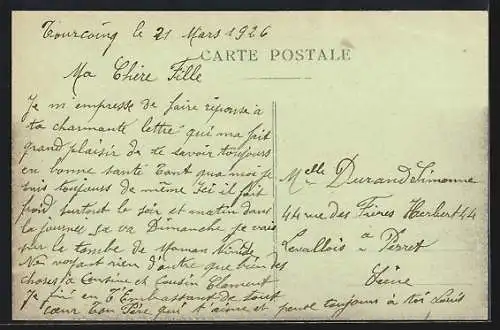 Tourcoing le 21 Mars 1926
CARTE POSTALE
Ma Chère Fille
Je m'empresse de faire réponse a
ta charmante lettre qui ma fait
grand plaisir de te savoir toujours
en bonne santé Tant qua moi je
suis toujours de même Ici il fait
froid surtout le soir et matin dans
la journee sa va Dimanche je vais
sur la tombe de Maman
Ne voyant rien d'autre que bien des
choses a Cousine et Cousin Clement
Je fini en T'Embrassant de tout
cœur Ton Père qui t'aime et pense toujours à toi Louis
Melle Durand Simonne
44 rue des Frères Herbert 44
Levallois à Perret
Seine